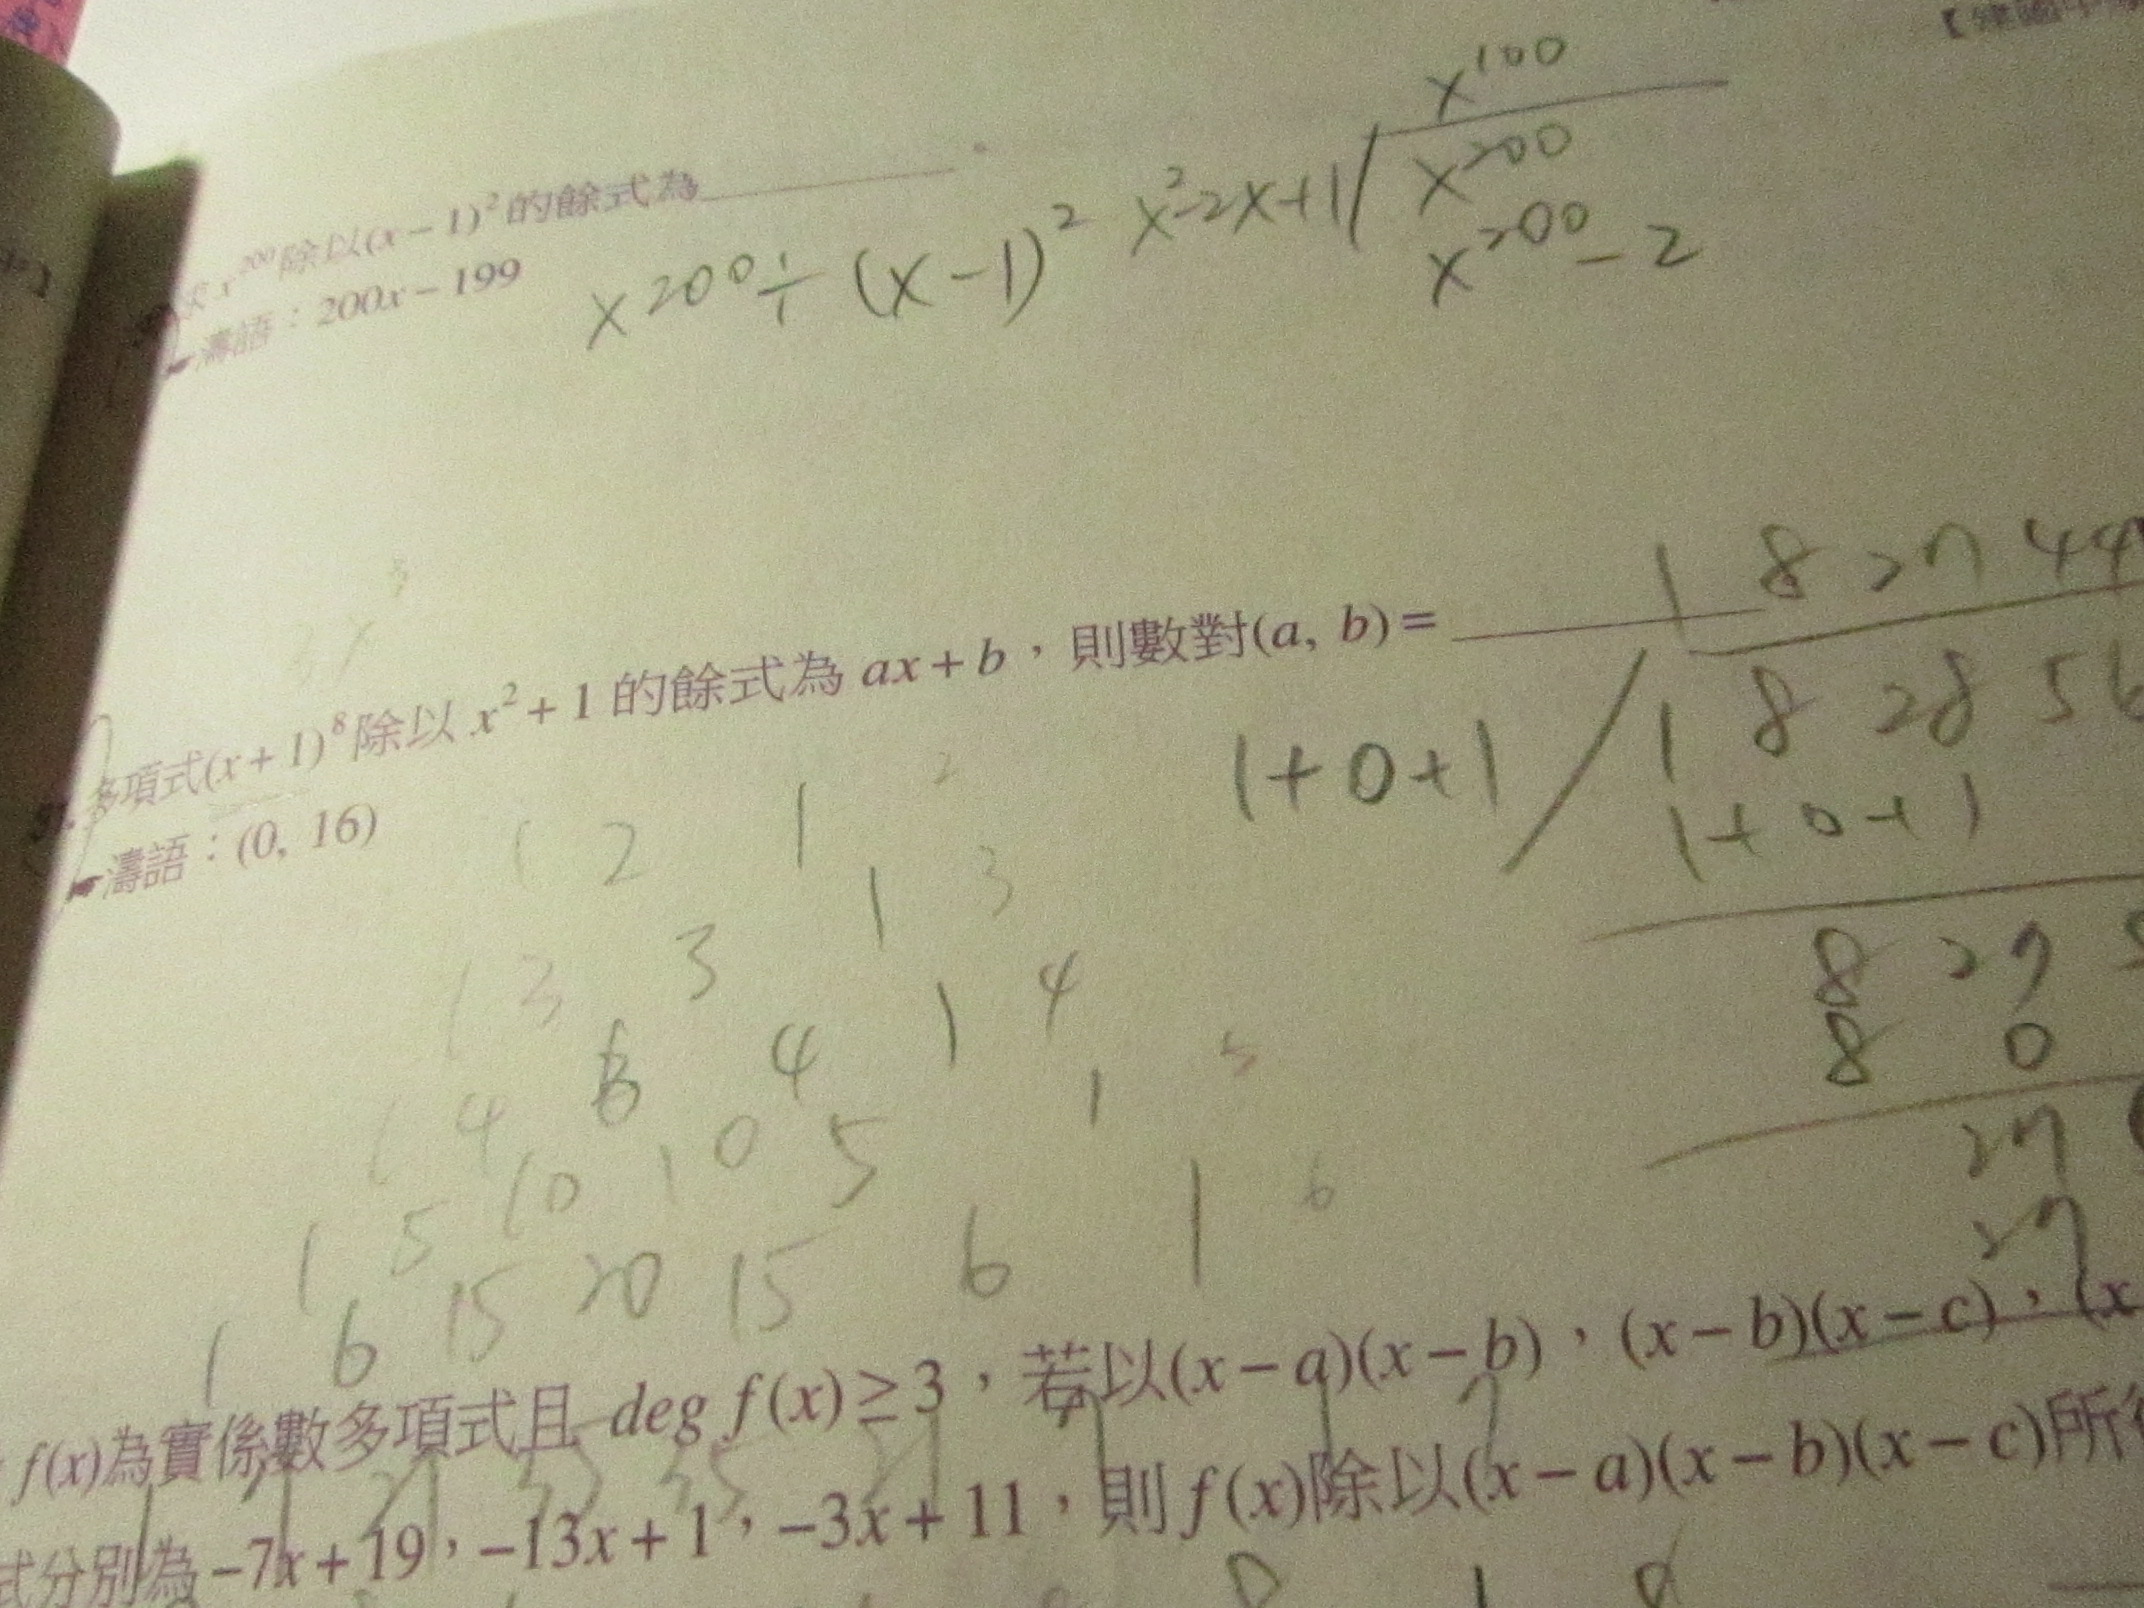 x^100
求 x^200 除以(x−1)^2 的餘式為
x^2-2x+1 x^200
濤語：200x−199
x^200 ÷ (x-1)^2
x^200-2
1 8 27 44
多項式(x+1)^8 除以 x^2+1 的餘式為 ax+b，則數對(a, b)=
1+0+1 1 8 28 56
濤語：(0, 16)
1+0+1
1 2 1 2
8 27
1 3 3 1 3
8 0
1 4 6 4 1 4
27
1 5 10 10 5 1 5
27
1 6 15 20 15 6 1 6
f(x)為實係數多項式且 deg f(x)≥3，若以(x−a)(x−b)，(x−b)(x−c)，(x
式分別為 −7x+19，−13x+1，−3x+11，則 f(x)除以(x−a)(x−b)(x−c)所